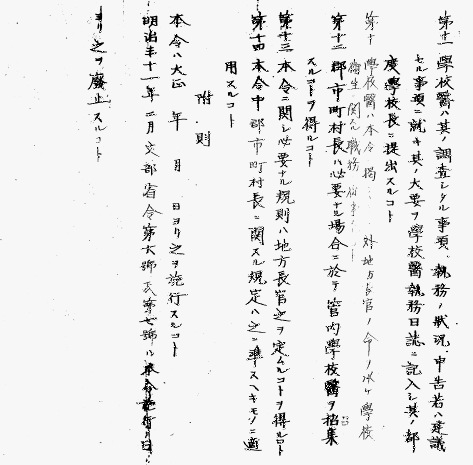 第十一 學校醫ハ其ノ調査シタル事項、執務ノ狀況、申告若ハ建議
セル事項ニ就キ其ノ大要ヲ學校醫執務日誌ニ記入シ其ノ都
度學校長ニ提出スルコト
第十 學校醫ハ本令 掲 外地方長官ノ命ノ 學校
衛生ニ關スル職務
第十二 郡市町村長ハ必要ナル場合ニ於テ管内學校醫ヲ招集
スルコトヲ得ルコト
第十三 本令ニ関シ必要ナル規則ハ地方長官之ヲ定ムルコトヲ得ルコト
第十四 本令中郡市町村長ニ関スル規定ハ之ニ準スヘキモノニ適
用スルコト
附則
本令ハ大正 年 月 日ヨリ之ヲ施行スルコト
明治三十一年二月文部省令第六號 號ハ本令施行ノ日
ヨリ之ヲ廢止スルコト